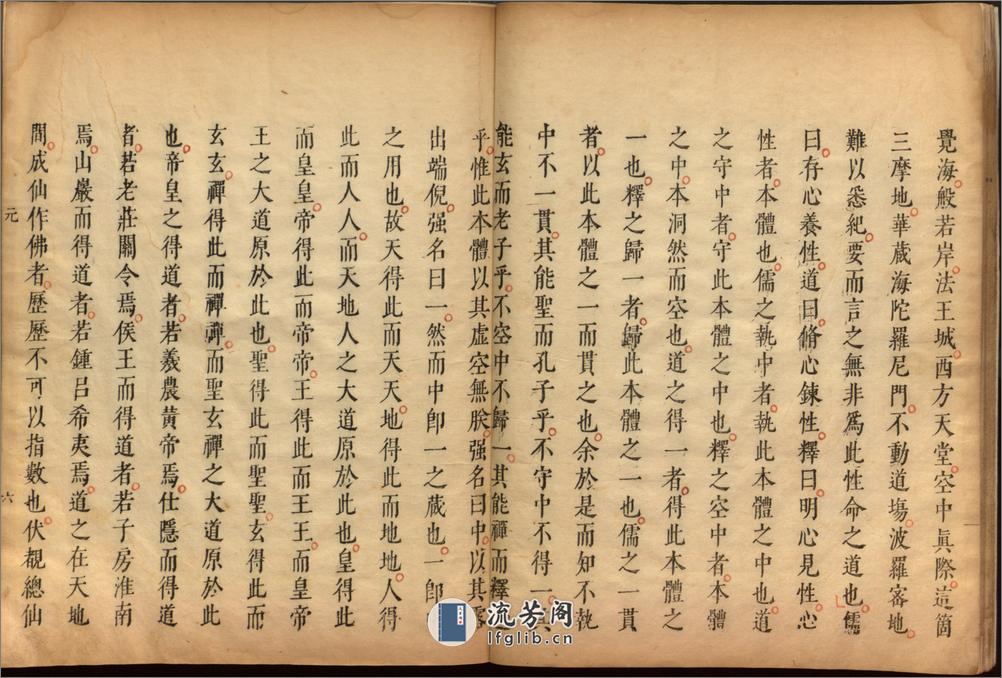 覺海般若岸法王城西方天堂空中眞際這箇
三摩地華蔵海陀羅尼門不動道塲波羅宻地
難以悉紀要而言之無非爲此性命之道也儒
曰存心養性道曰脩心鍊性釋曰明心見性心
性者本體也儒之執中者執此本體之中也道
之守中者守此本體之中也釋之空中者本體
之中本洞然而空也道之得一者得此本體之
一也釋之歸一者歸此本體之一也儒之一貫
者以此本體之一而貫之也余於是而知不執
中不一貫其能聖而孔子乎不守中不得一其
能玄而老子乎不空中不歸一其能禪而釋
乎惟此本體以其虛空無朕强名曰中以其露
出端倪强名曰一然而中卽一之蔵也一卽
之用也故天得此而天天地得此而地地人得
此而人人而天地人之大道原於此也皇得此
而皇皇帝得此而帝帝王得此而王王而皇帝
王之大道原於此也聖得此而聖聖玄得此而
玄玄禪得此而禪禪而聖玄禪之大道原於此
也帝皇之得道者若羲農黃帝焉仕隱而得道
者若老莊關令焉侯王而得道者若子房淮南
焉山巖而得道者若鍾呂希夷焉道之在天地
間成仙作佛者歷歷不可以指數也伏覩總仙
元
六
流芳阁
lfglib.cn